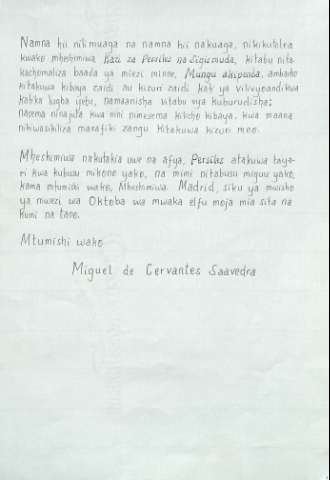 Namna hii nilimuaga na namna hii nakuaga, nikikutolea
kwako mheshimiwa Kazi za Persiles na Sigismuda, kitabu nita-
kachomaliza baada ya miezi minne, Mungu akipenda, ambacho
kitakuwa kibaya zaidi au kizuri zaidi kati ya vilivyoandikwa
katika lugha yetu, namaanisha vitabu vya kuburudisha;
nasema ninajuta kwa nini nimesema kilicho kibaya, kwa maana
nikiwasikiliza marafiki zangu kitakuwa kizuri mno.
Mheshimiwa nakutakia uwe na afya, Persiles atakuwa taya-
ri kwa kubusu mikono yako, na mimi nitabusu miguu yako,
kama mtumishi wako, Mheshimiwa. Madrid, siku ya mwisho
ya mwezi wa Oktoba wa mwaka elfu moja mia sita na
kumi na tano.
Mtumishi wako
Miguel de Cervantes Saavedra